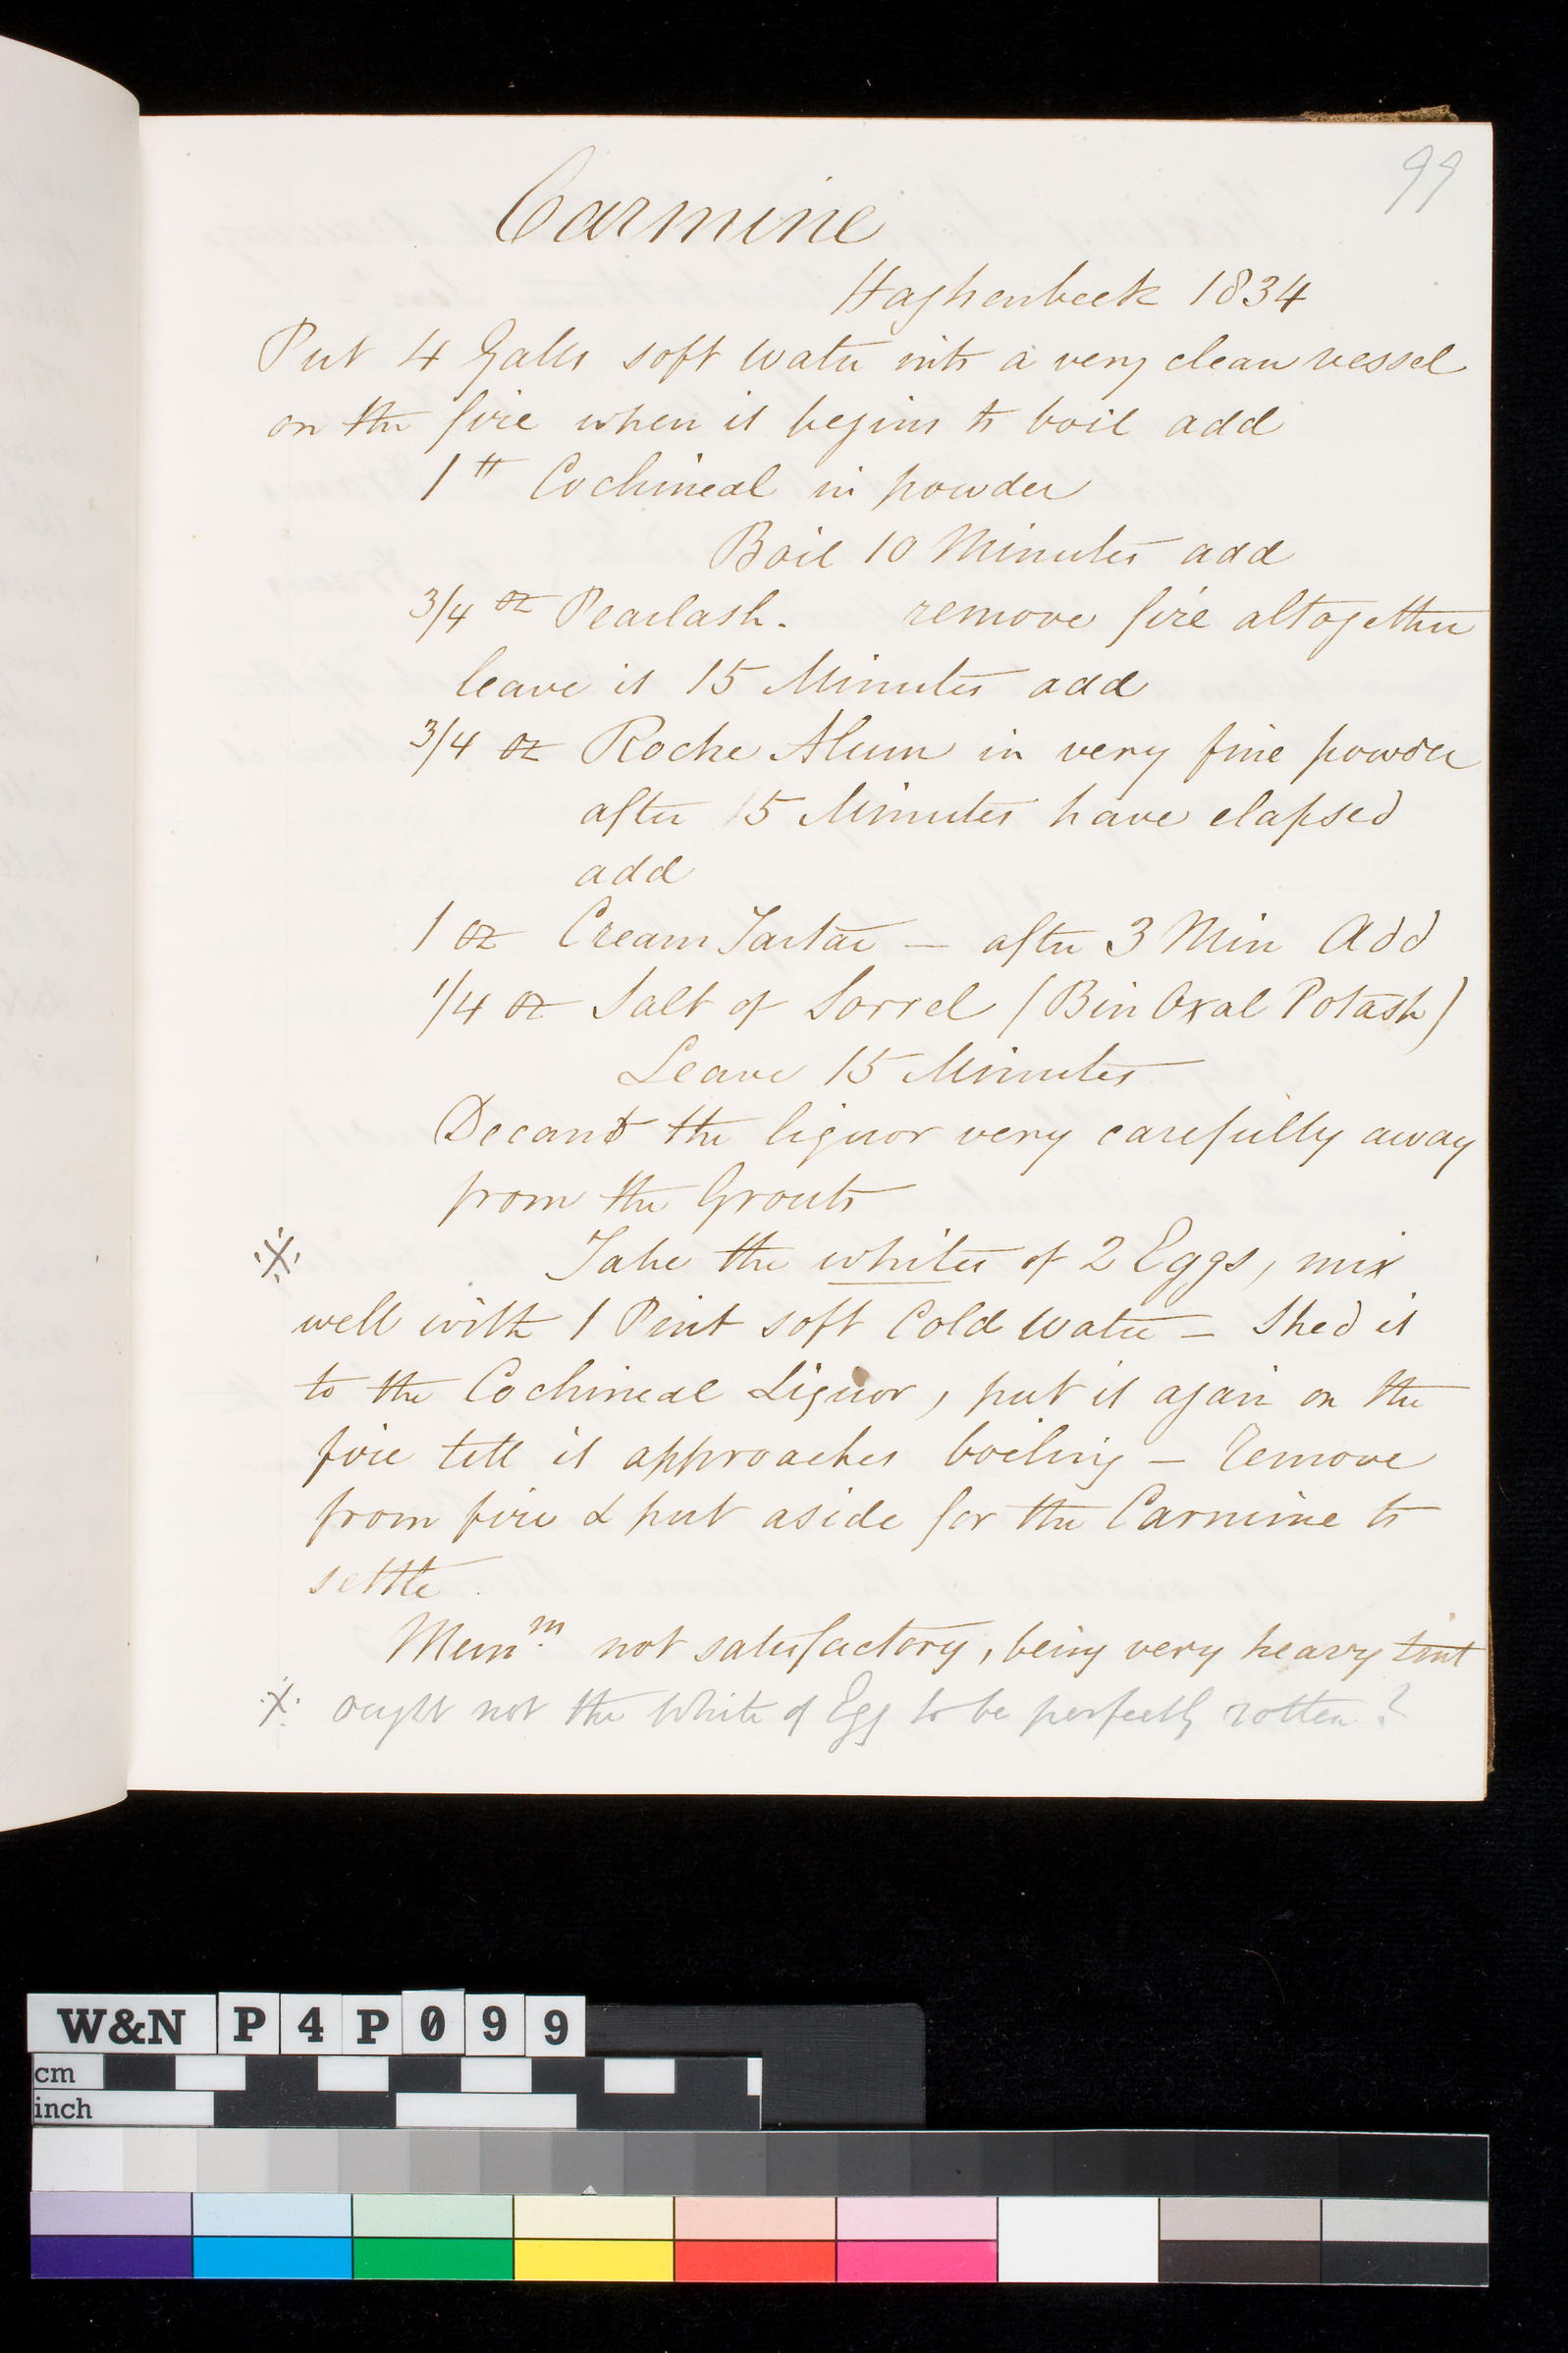 99
Carmine
Haghenbeek 1834
Put 4 Galls soft water into a very clean vessel
on the fire when it begins to boil add
1 lb Cochineal in powder
Boil 10 Minutes add
3/4 oz Pearlash. remove fire altogether
leave it 15 Minutes add
3/4 oz Roche Alum in very fine powder
after 15 Minutes have elapsed
add
1 oz Cream Tartar – after 3 Min Add
1/4 oz Salt of Sorrel (Bin Oxal Potash)
Leave 15 Minutes
Decant the liquor very carefully away
from the Grouts
※ Take the whites of 2 Eggs, mix
well with 1 Pint soft Cold Water – Shed it
to the Cochineal Liquor, put it again on the
fire till it approaches boiling – remove
from fire & put aside for the Carmine to
settle.
Mem.m not satisfactory, being very heavy tint
※ ought not the White of Egg to be perfectly rotten?
W&N P4P099
cm
inch